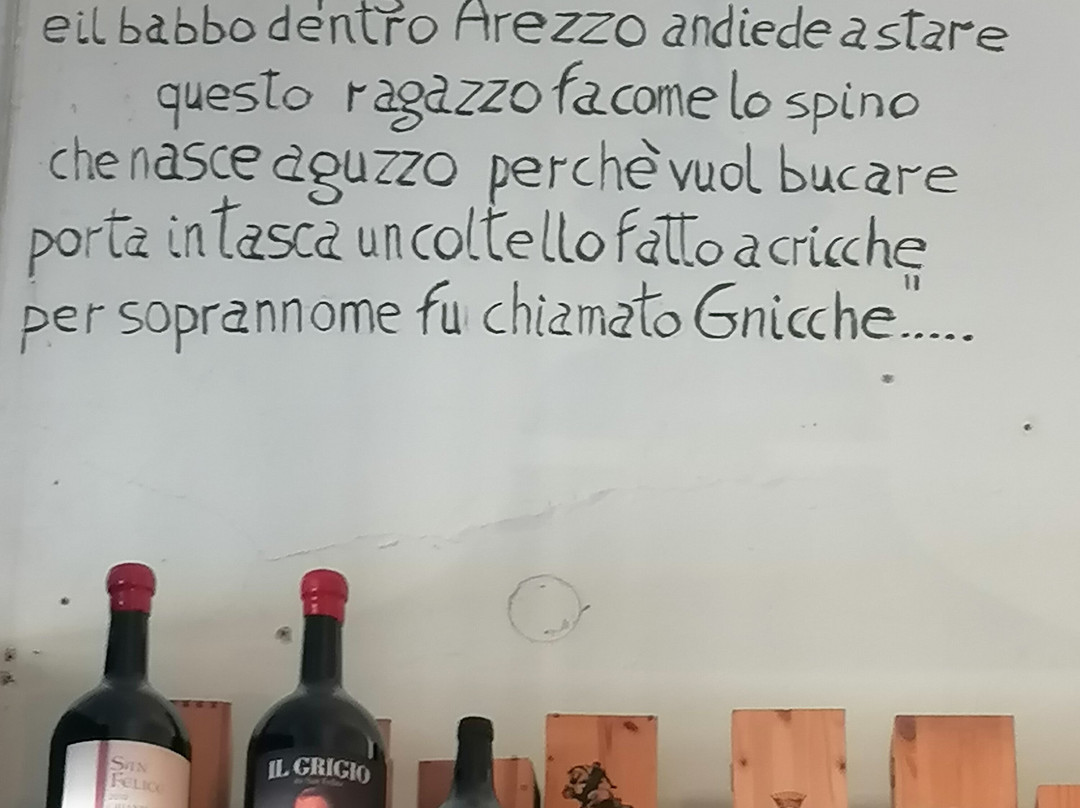 e il babbo dentro Arezzo andiede a stare
questo ragazzo fa come lo spino
che nasce aguzzo perchè vuol bucare
porta in tasca un coltello fatto a cricche
per soprannome fu chiamato Gnicche".....
SAN
FELICE
IL GRIGIO